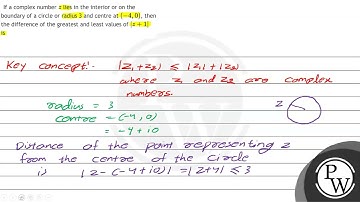 If a complex number z lies in the interior or on the
boundary of a circle or radius 3 and centre at (−4, 0), then
the difference of the greatest and least values of |z + 1|
is
Key concept:- |z₁+z₂| ≤ |z₁|+|z₂|
where z₁ and z₂ are complex
numbers.
radius = 3
centre = (-4,0)
= -4+i0
z
Distance of the point representing z
from the centre of the circle
is |z-(-4+i0)| = |z+4| ≤ 3
PW